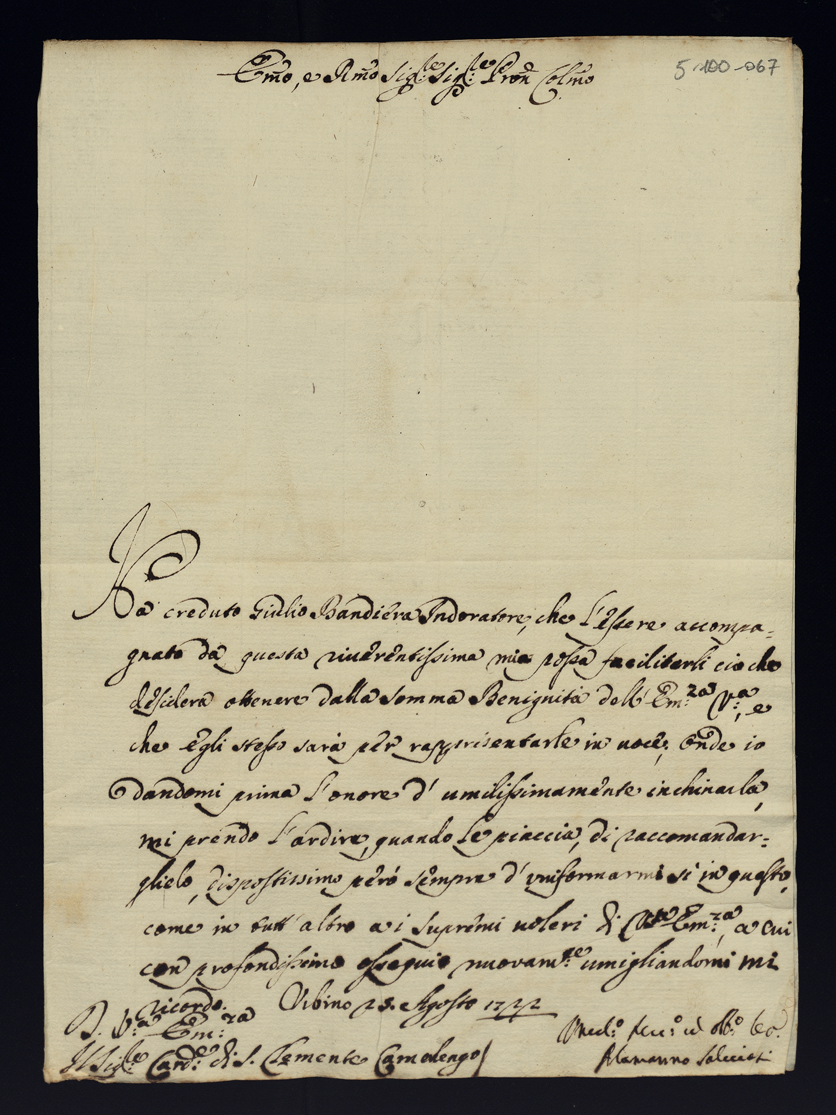 Emo, e Rmo Sig.re Sig.re Pron Colmo
5-100-067
Ha creduto Giulio Bandiera Indoratore, che l'essere accompa=
gnato da questa riverentissima mia possa facilitarli ciò che
desidera ottenere dalla somma Benignità dell' Em.za V.a, e
che Egli stesso sarà per rappresentarle in voce, Onde io
dandomi prima l'onore d' umilissimamente inchinarla,
mi prendo l'ardire, quando le piaccia, di raccomandar=
glielo, dispostissimo però sempre d'uniformarmi sì in questo,
come in tutt' altro a i supremi voleri di Em.za, a cui
con profondissimo ossequio nuovam.te umigliandomi mi
ricordo. Urbino 23. Agosto 1722
D. V.a Em.za
Il Sig.re Card.e di S. Clemente Camolengo
Alamanno Salviati